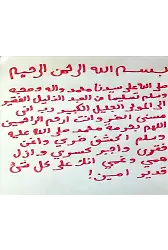 بسم الله الرحمن الرحيم
صلى الله على سيدنا محمد واله وصحبه
وسلم تسليما من العبد الذليل الفقير
الى المولى الجليل الكبير رب انى
مسنى الضر وانت ارحم الراحمين
اللهم بحرمة محمد صلى الله عليه
وسلم اكشف ضرى واغن
فقرى واجبر كسرى وازل
همى وغمى انك على كل شئ
قدير امين!